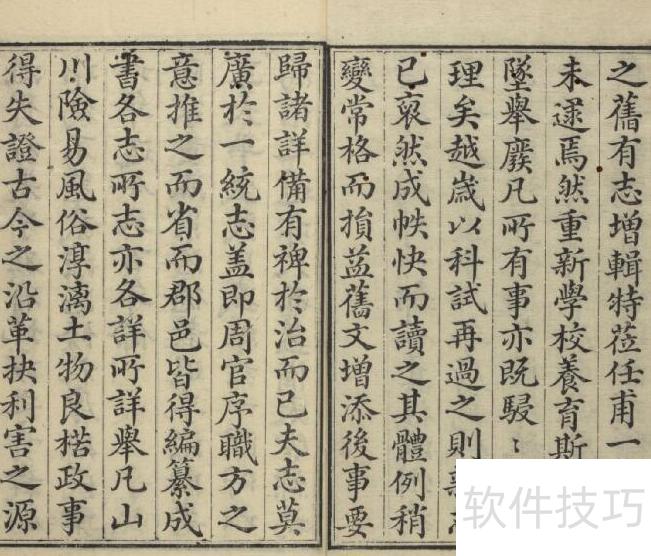 之舊有志增輯特蒞任甫一
未逮焉然重新學校養育斯
墜舉廢凡所有事亦既駸〻
理矣越歲以科試再過之則
已裒然成帙快而讀之其體例稍
變常格而損益舊文增添後事要
歸諸詳備有裨於治而已夫志莫
廣於一統志盖即周官序職方之
意推之而省而郡邑皆得編纂成
書各志所志亦各詳所詳舉凡山
川險易風俗淳漓土物良楛政事
得失證古今之沿革抉利害之源
软件技巧